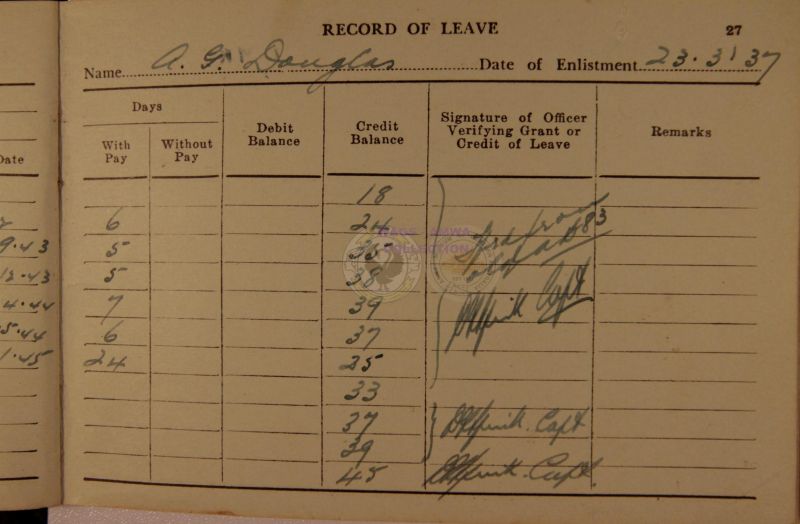 RECORD OF LEAVE 27
Name A. G. Douglas Date of Enlistment 23.3.37
Days
With Pay Without Pay Debit Balance Credit Balance Signature of Officer Verifying Grant or Credit of Leave Remarks
Date
18
6 24
9.43 5 35
12.43 5 38
4.44 7 39
5.44 6 37
1.45 24 25
33
37 Capt
39
45 Capt.
RAGS AMWA
COLLECTION